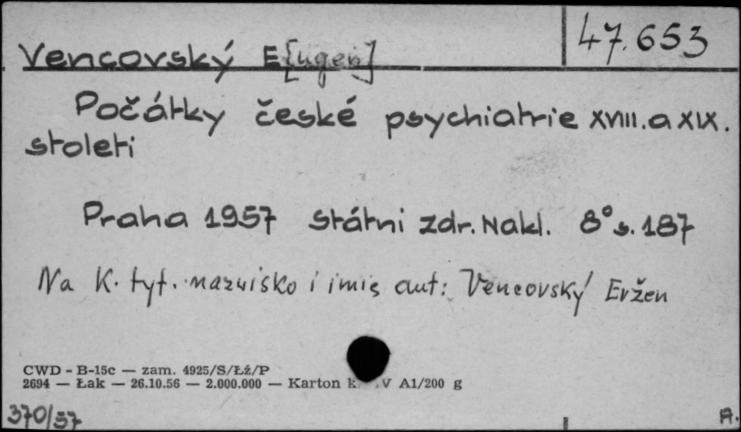 47.653
Vencovský E[ugen]
Počátky české psychiatrie XVIII. a XIX.
stoleti
Praha 1957 Státni zdr. Nakl. 8° s. 187
Na K. tyt. nazwisko i imię aut: Vencovský Evžen
CWD - B-15c — zam. 4925/S/Łź/P
2694 — Łak — 26.10.56 — 2.000.000 — Karton k. V A1/200 g
370/57 A.